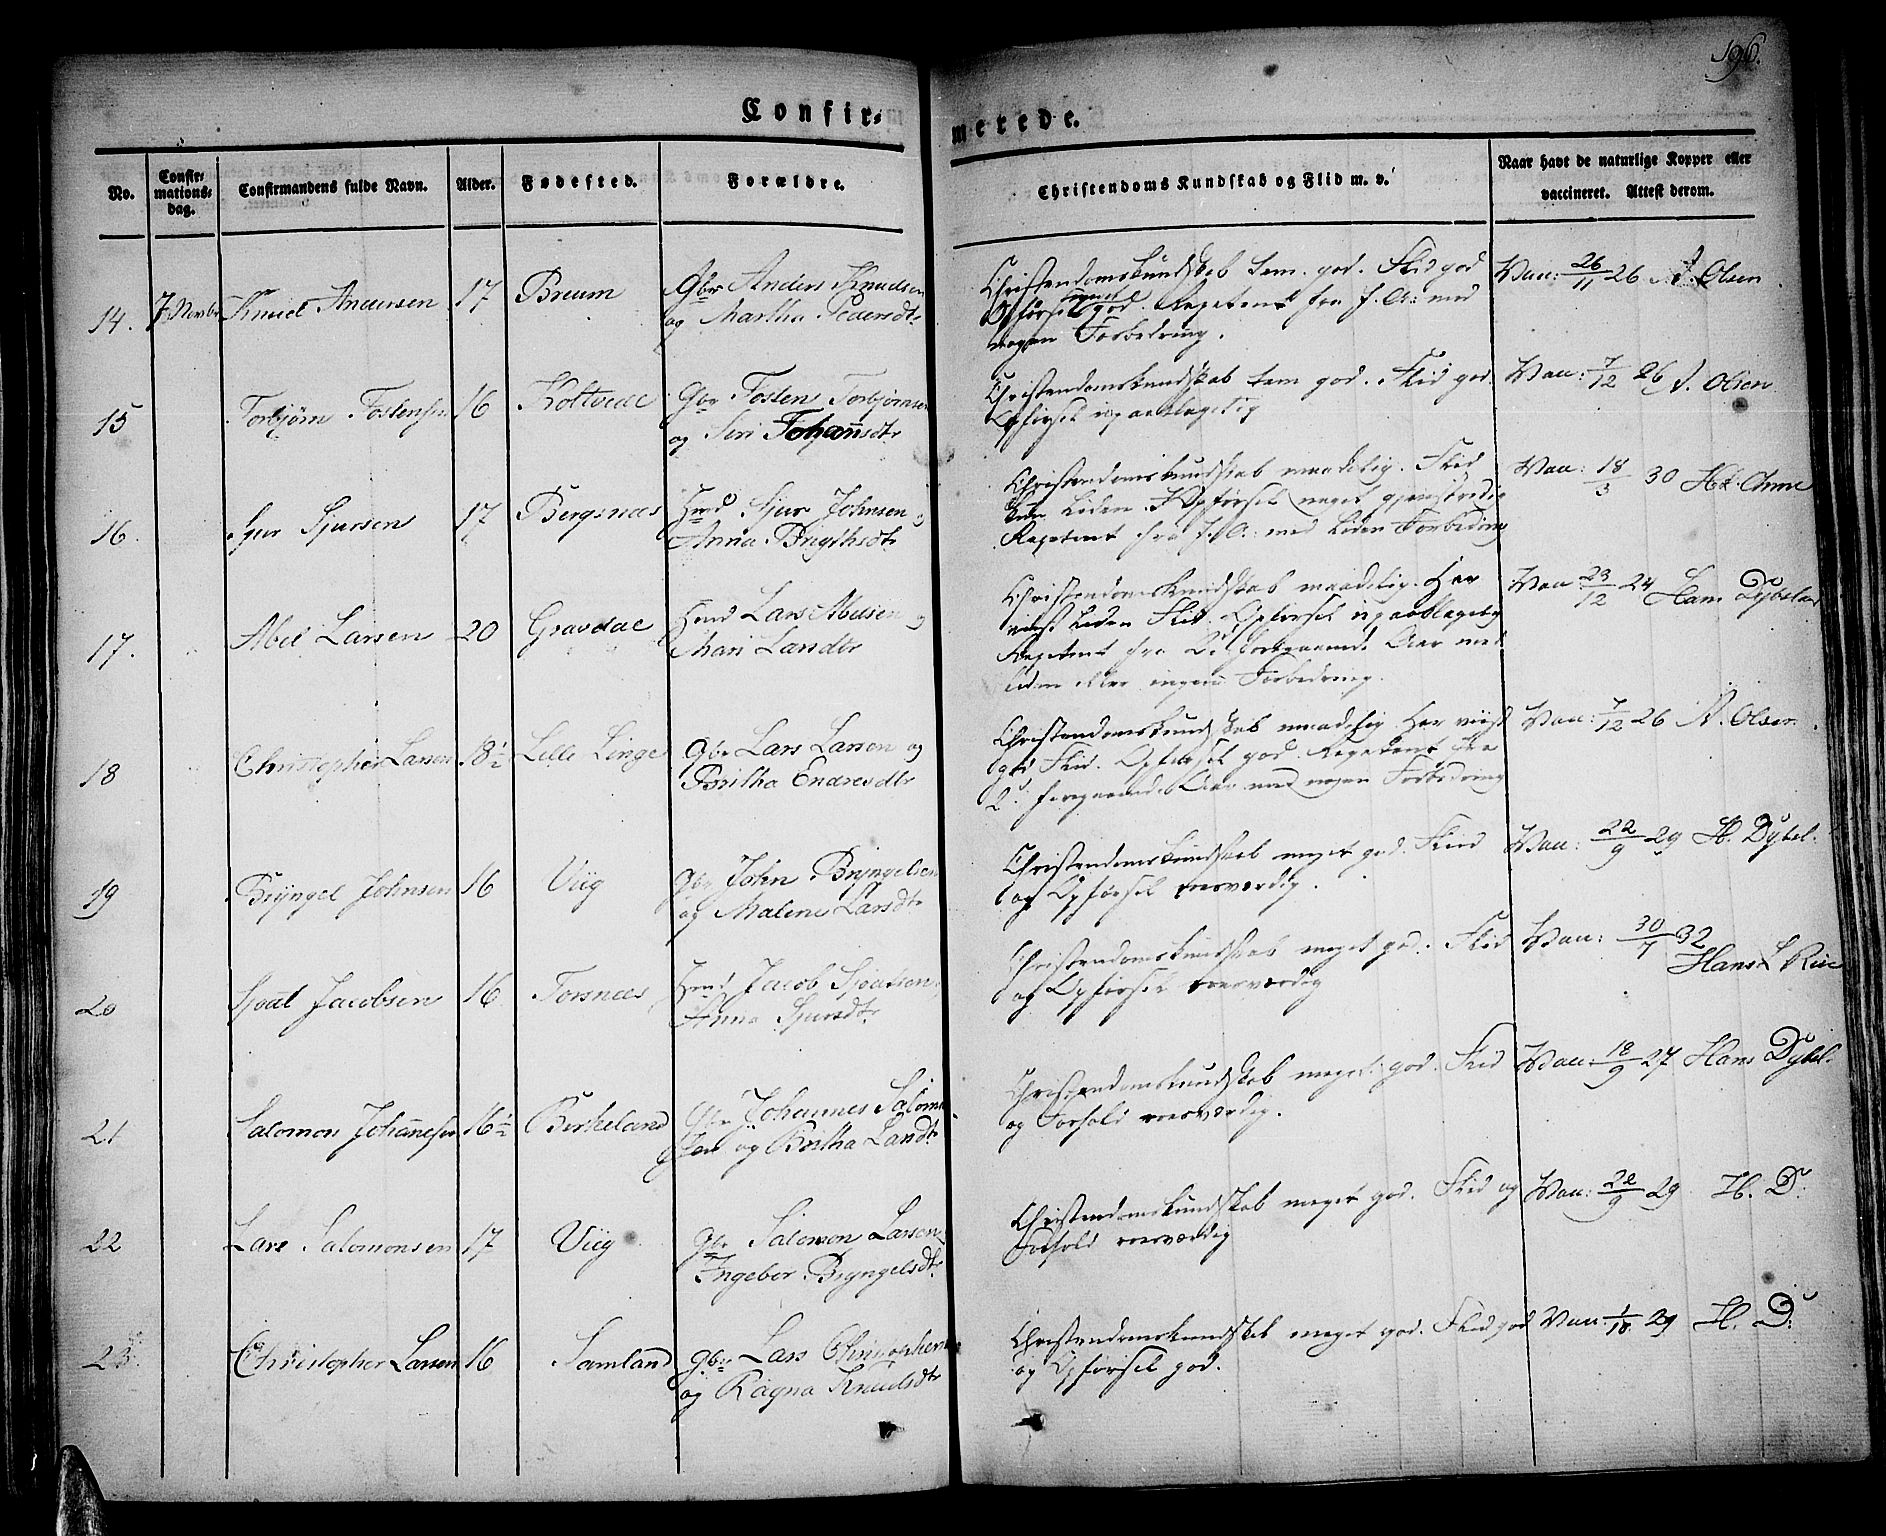 196.
Confir=
merede.
No.
Confir=
mations=
dag.
Confirmandens fulde Navn.
Alder.
Fødested.
Forældre.
Christendoms Kundskab og Flid m. v.
Naar havt de naturlige Kopper eller
vaccineret. Attest derom.
14. 7 Novbr Knud Andersen 17 Breum Gbr Anders Knudsen
og Martha Pedersdtr
Christendomskundskab tem. god. Flid god
Opførsel god. Repetent fra f. A: med
nogen Forbedring.
Vac: 26/11 26 A. Olsen
15 Torbjørn Tostensen 16 Koltvedt Gbr Tosten Torbjørnsen
og Siri Johannsdtr
Christendomskundskab tem god. Flid god
Opførsel upaaklagelig
Vac: 7/12 26 A. Olsen
16. Sjur Sjursen 17 Bergsnæs Hmd Sjur Johnsen
Anna Brythsdtr
Christendomskundskab maadelig. Flid
kun Liden. Opførsel noget
Repetent fra f. A: med Liden Forbedring
Vac: 18/3 30
17. Abel Larsen 20 Gravdal Hmd Lars Abelsen
Mari Larsdtr
Christendomskundskab maadelig. Har
viist Liden Flid. Opførsel upaaklagelig
Repetent fra 2de foregaaende Aar med
liden eller ingen Forbedring.
Vac 23/12 24 Hans Dybsland
18 Christopher Larsen 18½ Lille Linge Gbr Lars Larsen og
Britha Endresdtr
Christendomskundskab maadelig Har viist
god Flid. Opførsel god. Repetent fra
2de foregaaende Aar med nogen Forbedring
Vac: 7/12 26 A. Olsen
19 Bryngel Johnsen 16 Viig Gbr John Bryngelsen
og Malene Larsdtr
Christendomskundskab meget god. Flid
og Opførsel roesværdig.
Vac: 22/9 29 H. Dybsl.
20 Sjoat Jacobsen 16 Torsnæs Hmd Jacob Sjoatsen
Anna Sjursdtr
Christendomskundskab meget god. Flid
og Opførsel roesværdig
Vac: 30/7 32
Hans L
21 Salomon Johannesen 16½ Birkeland Gbr Johannes Salomon
sen og Britha Larsdtr
Christendomskundskab meget god. Flid
og Forhold roesværdig.
Vac: 18/9 27 Hans Dybsl.
22 Lars Salomonsen 17 Viig Gbr Salomon Larsen
Ingebor Bryngelsdtr
Christendomskundskab meget god. Flid og
Forhold roesværdig
Vac: 22/9 29 H. D:
23. Christopher Larsen 16 Samland Gbr Lars Christophersen
og Ragna Knudsdtr
Christendomskundskab meget god. Flid god
og Opførsel god.
Vac: 1/10 29 H. D: